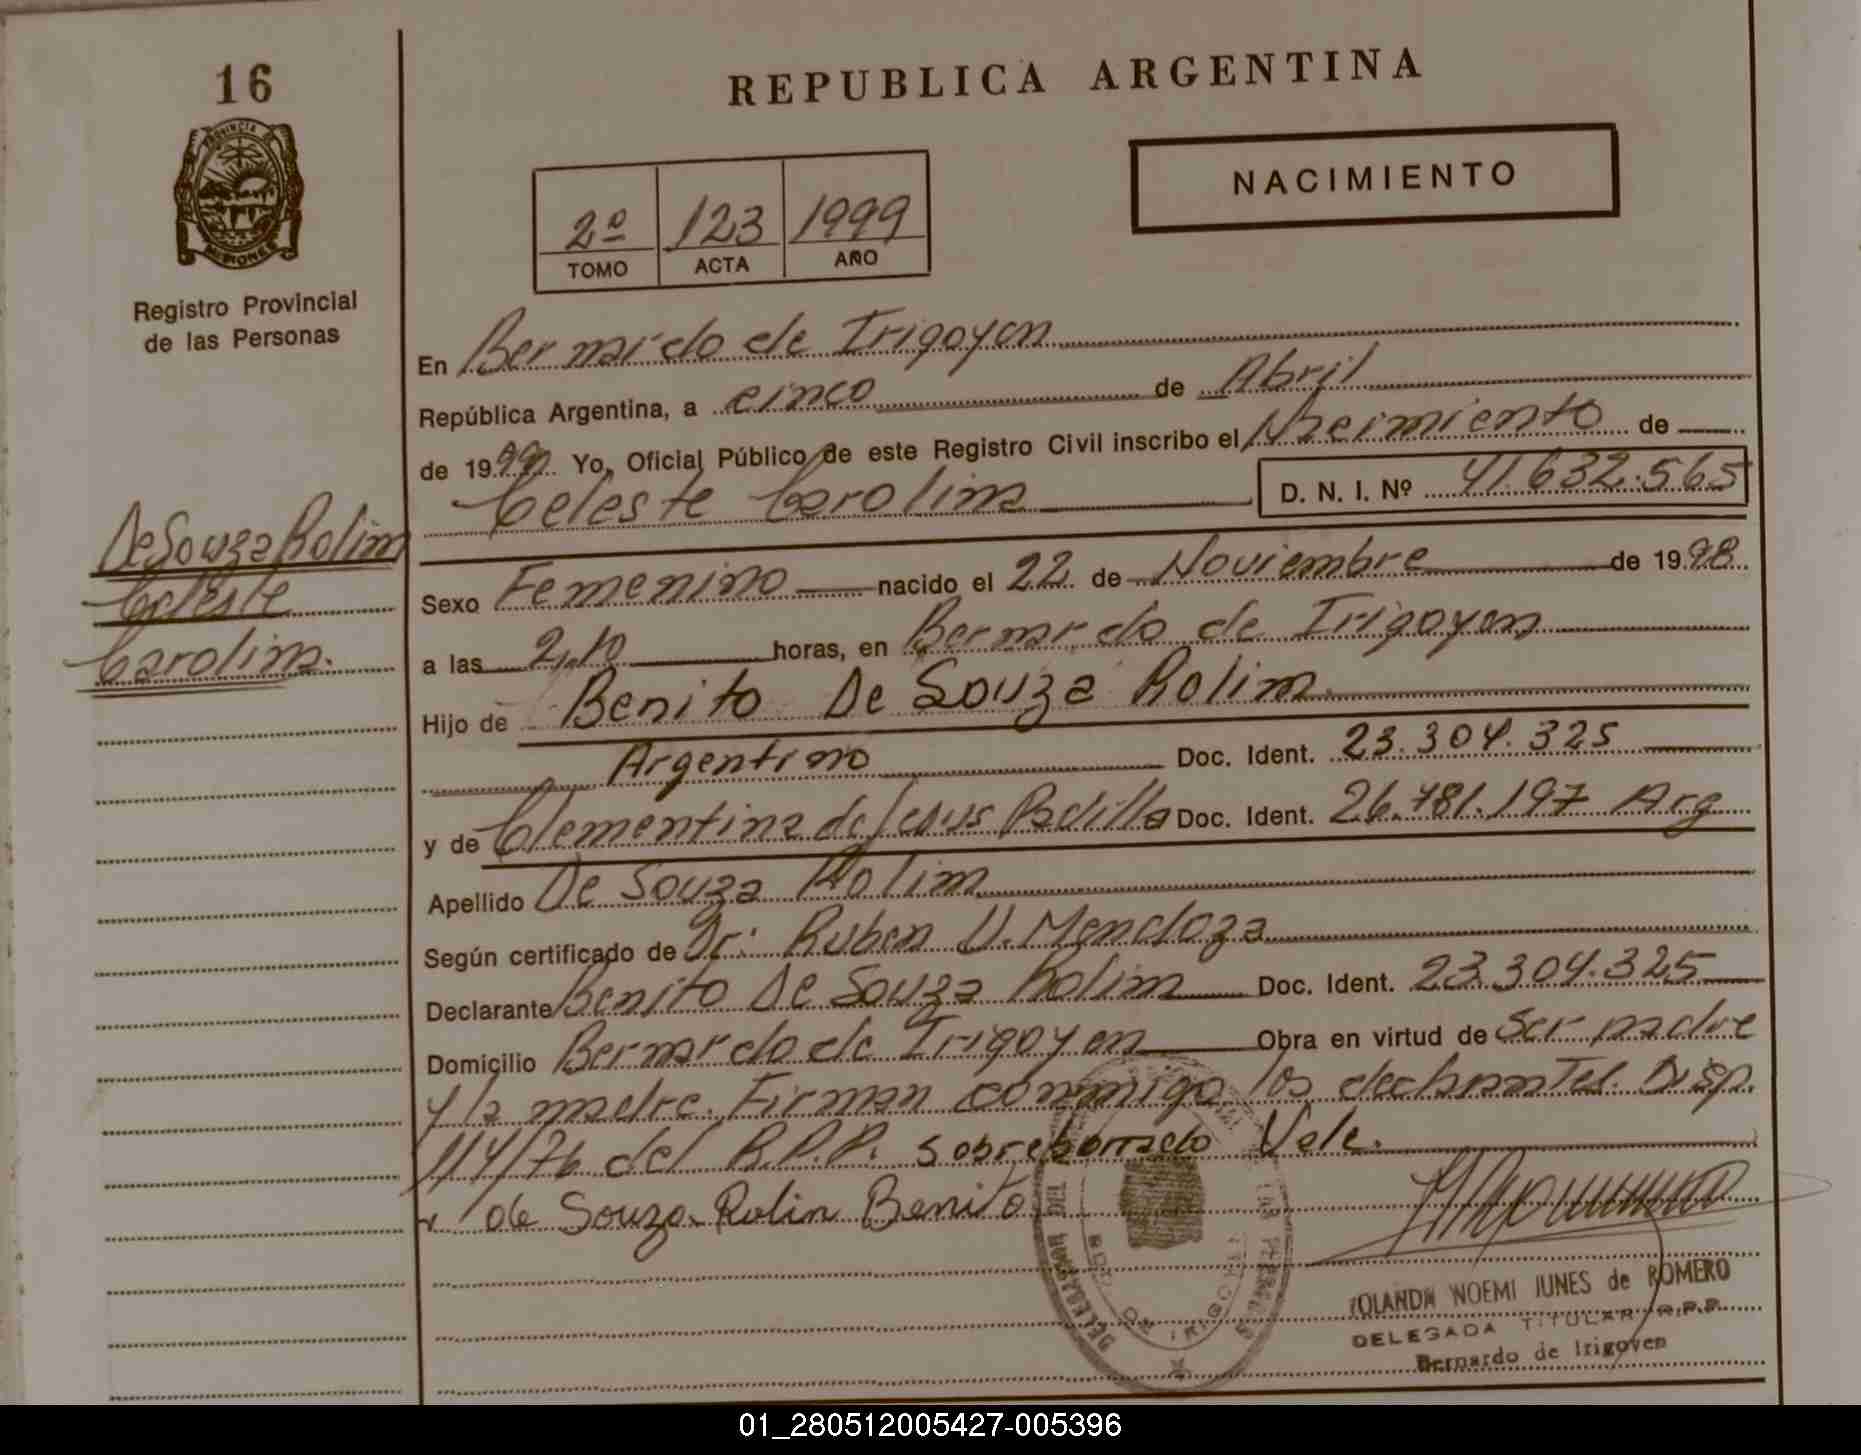 16
REPUBLICA ARGENTINA
PROVINCIA DE
MISIONES
NACIMIENTO
2º 123 1999
TOMO ACTA AÑO
Registro Provincial
de las Personas
En Bernardo de Irigoyen
República Argentina, a cinco de Abril
de 1999 Yo, Oficial Público de este Registro Civil inscribo el Nacimiento de
Celeste Carolina D. N. I. Nº 41.632.565
De Souza Rolim
Celeste
Carolina.
Sexo Femenino nacido el 22 de Noviembre de 1998
a las 2,10 horas, en Bernardo de Irigoyen
Hijo de Benito De Souza Rolim
Argentino Doc. Ident. 23.304.325
y de Clementina de Jesus Padilla Doc. Ident. 26.781.197 Arg
Apellido De Souza Rolim
Según certificado de Dr: Ruben V. Mendoza
Declarante Benito De Souza Rolim Doc. Ident. 23.304.325
Domicilio Bernardo de Irigoyen Obra en virtud de Ser padre
y la madre. Firman conmigo los declarantes. Disp.
114/76 del R.P.P. sobreborrado Vale.
de Souza Rolin Benito
YOLANDA NOEMI JUNES de ROMERO
DELEGADA TITULAR R.P.P.
Bernardo de Irigoyen
01_280512005427-005396